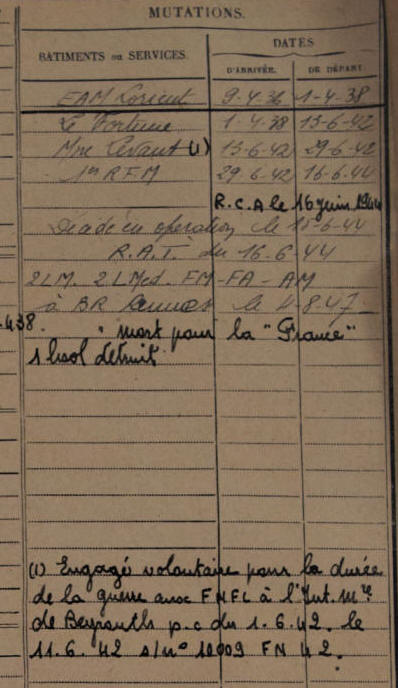 MUTATIONS.
BATIMENTS ou SERVICES. DATES
D'ARRIVÉE. DE DÉPART.
EAM Lorient 9-4-36 1-4-38
Le Fortuné 1-4-38 13-6-42
Mne Levant (1) 13-6-42 29-6-42
1er R F M 29.6.42 16-6-44
R.C.A le 16 juin 1944
Décédé en opération le 15-6-44
R.A.T. du 16.6.44
2LM. 2LMed. FM-FA-AM
à BR le 4-8-47
438. "mort pour la "France"
1 hsol détruit
(1) Engagé volontaire pour la durée
de la guerre aux FNFL à l'Int. Mme
de Beyrouth p.c du 1.6.42. le
11.6.42 s/n° 10009 FN 42.